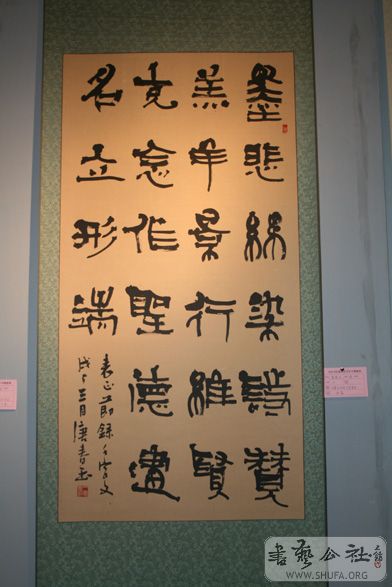 墨悲絲染詩贊
羔羊景行維賢
克念作聖德建
名立形端
表正節錄千字文
戊子三月
書藝公社
WWW.SHUFA.ORG